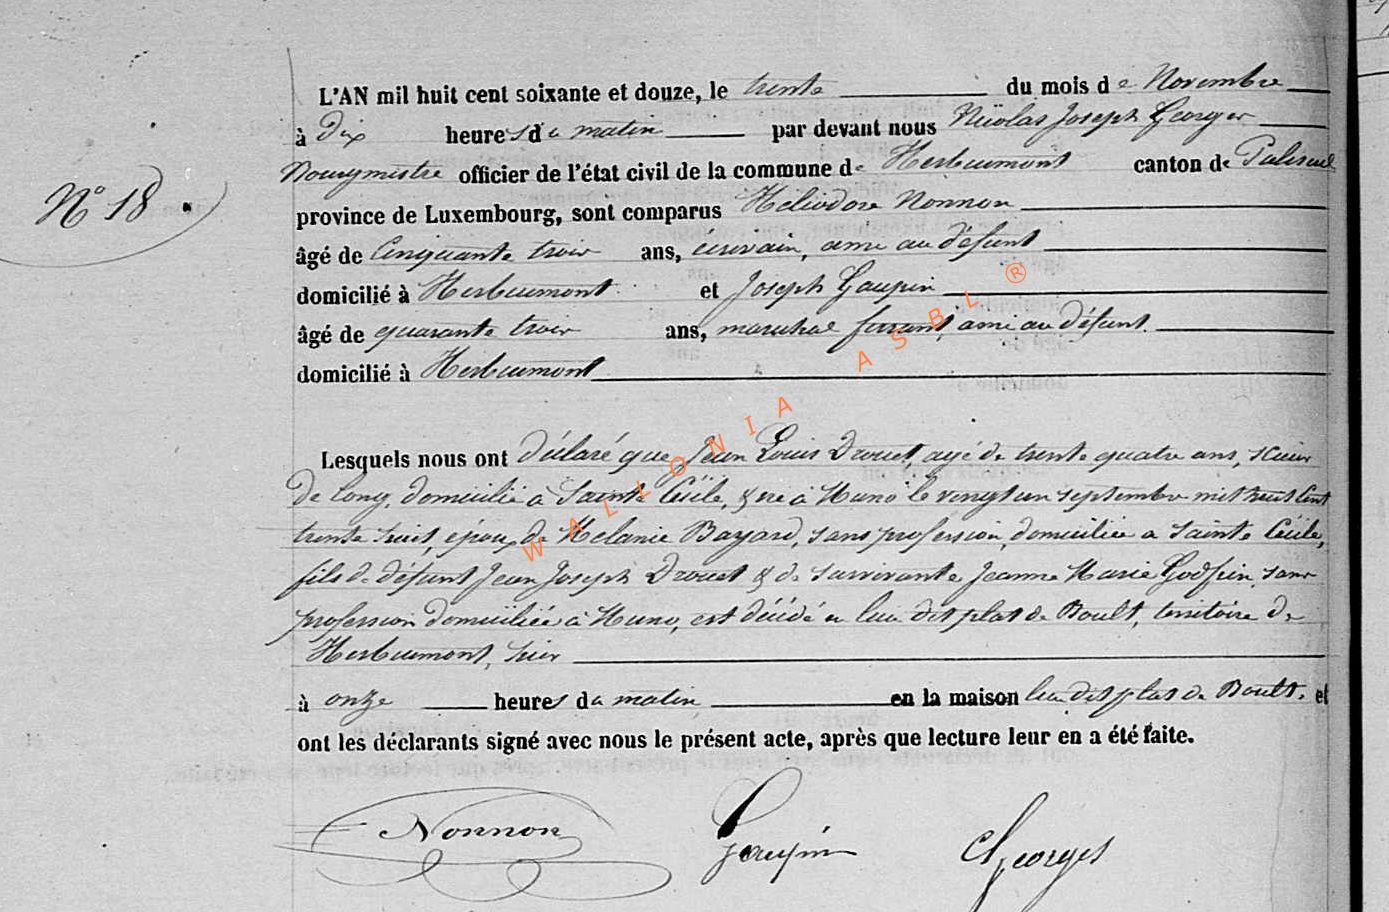 L'AN mil huit cent soixante et douze, le trente du mois de Novembre
à dix heures du matin par devant nous Nicolas Joseph Georges
Bourgmestre officier de l'état civil de la commune de Herbeumont canton de Paliseul
N° 18
province de Luxembourg, sont comparus Héliodore Nonnon
âgé de cinquante trois ans, écrivain, ami au défunt
domicilié à Herbeumont et Joseph Gaupin
âgé de quarante trois ans, maréchal ferrant, ami au défunt
domicilié à Herbeumont
Lesquels nous ont déclaré que Jean Louis Drouet agé de trente quatre ans, scieur
de long, domicilié à Sainte Cécile, & né à Muno le vingt un septembre mil huit cent
trente huit, époux de Mélanie Bayard, sans profession, domiciliée a Sainte Cécile,
fils de défunt Jean Joseph Drouet & de survivante Jeanne Marie Godfrin, sans
profession domiciliée à Muno, est décédé au lieu dit plat de Boult, territoire de
Herbeumont, hier
à onze heures du matin en la maison lieu dit plat de Boult. et
ont les déclarants signé avec nous le présent acte, après que lecture leur en a été faite.
Nonnon Gaupin Georges
WALLONIA ASBL ®